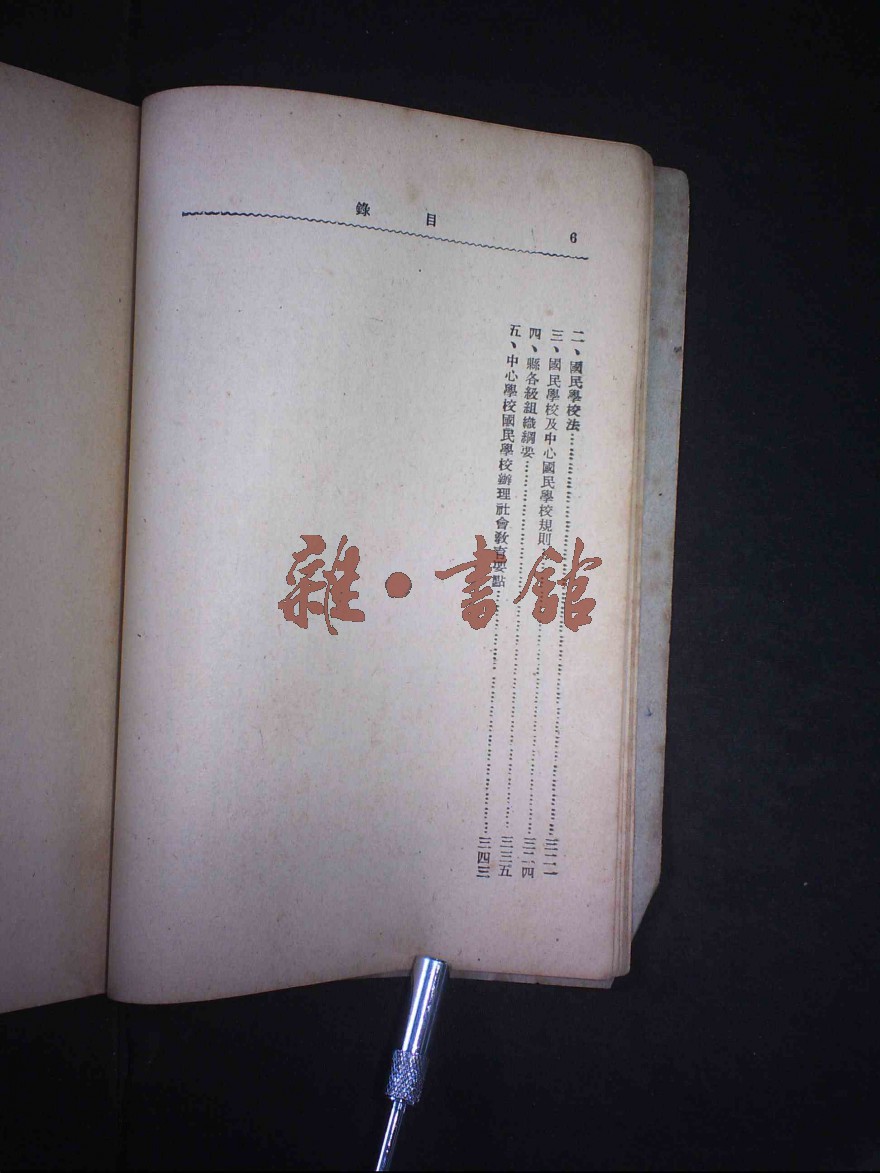 6
目錄
二、國民學校法……三二一
三、國民學校及中心國民學校規則……三二四
四、縣各級組織綱要……三三五
五、中心學校國民學校辦理社會教育要點……三四三
雜·書館